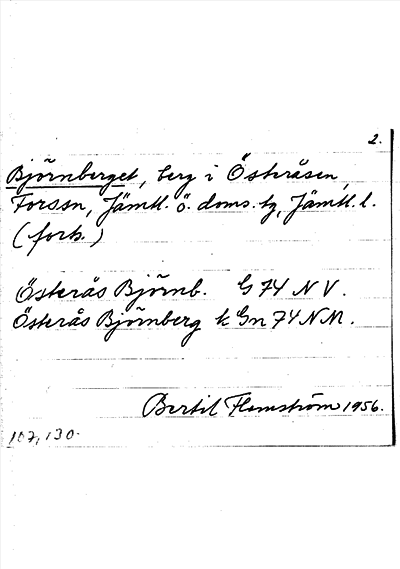 2.
Björnberget, berg i Österåsen,
Forssn, Jämtl. ö. doms. tg, Jämtl. l.
(forts.)
Österås Björnb. G 74 N V.
Österås Björnberg k Gn 74 N M.
Bertil Flemström 1956.
107,130.